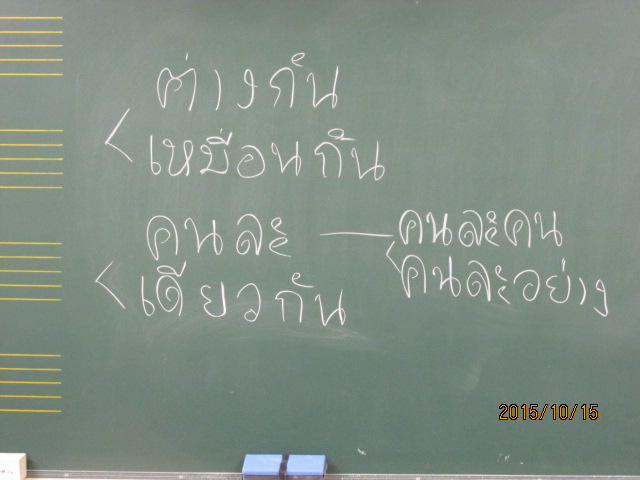 ต่างกัน
เหมือนกัน
คนละ — คนละคน
คนละอย่าง
เดียวกัน
2015/10/15